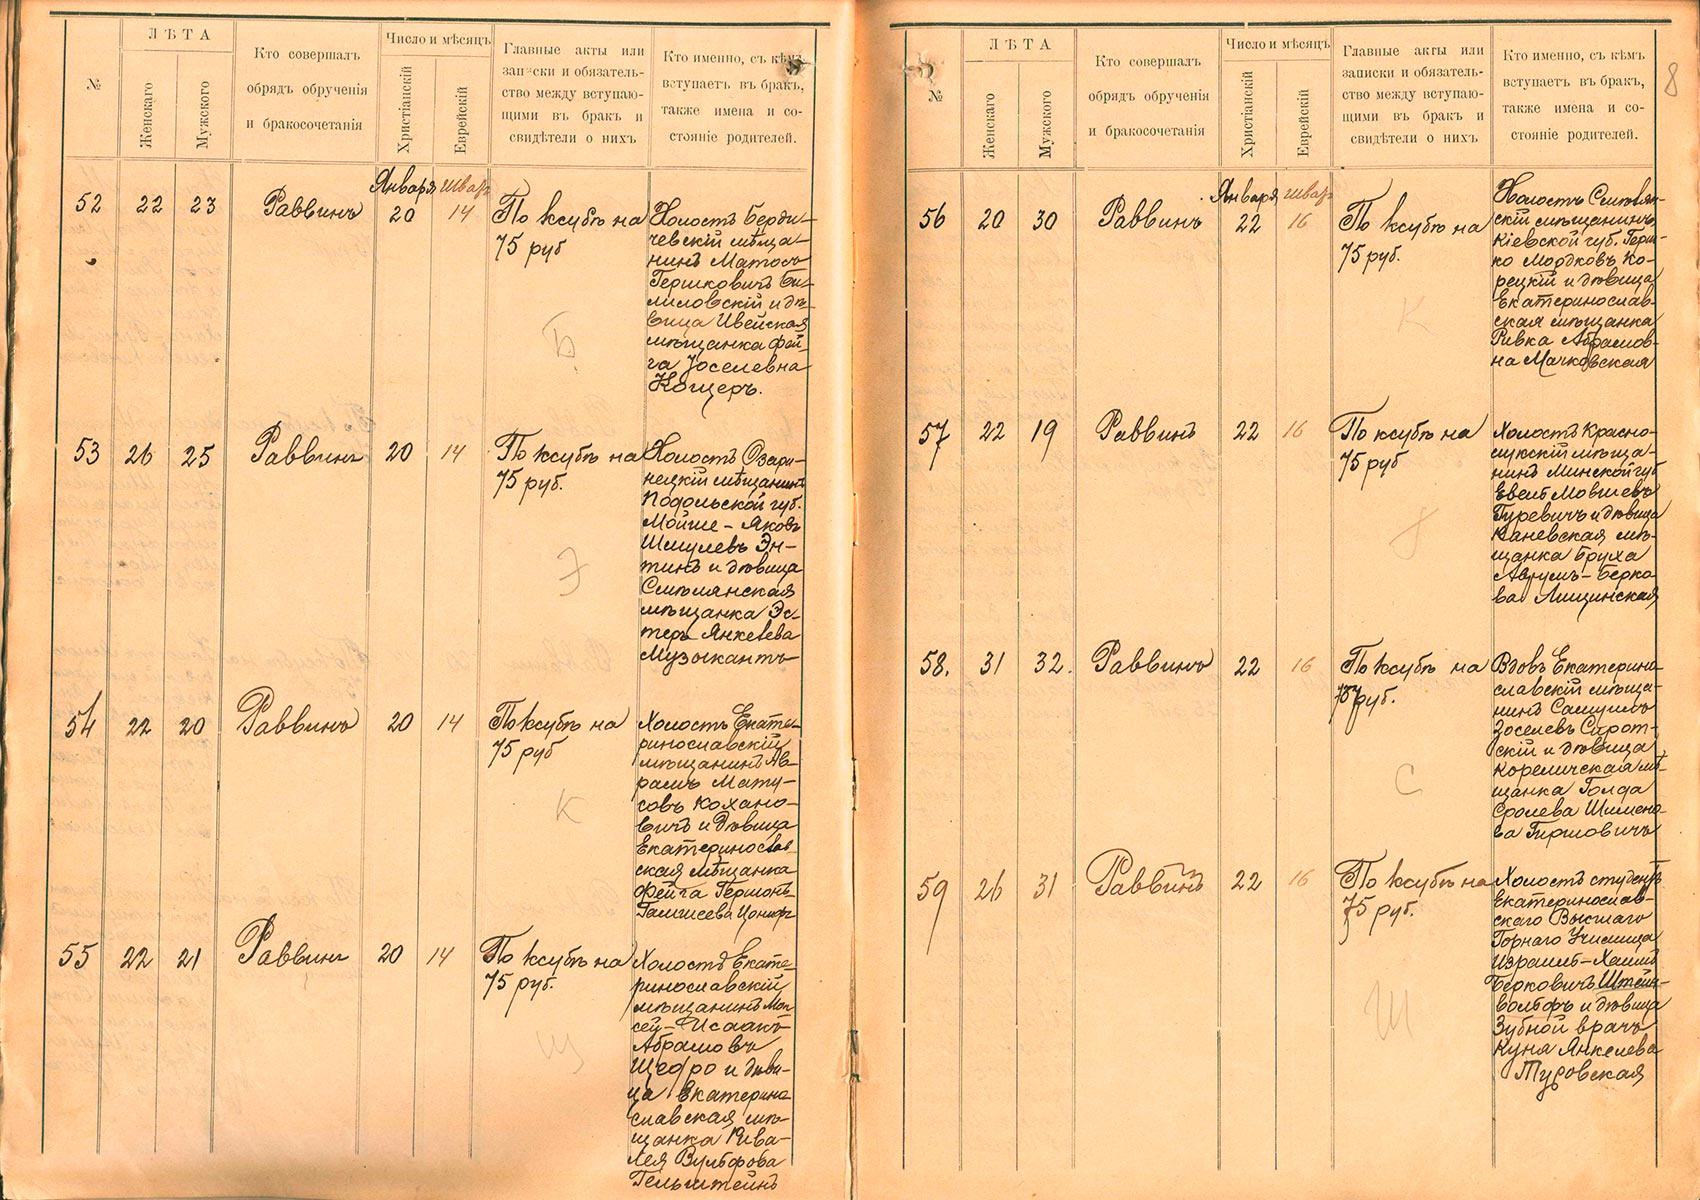 №
ЛѢТА
Женскаго
Мужского
Кто совершалъ
обрядъ обрученія
и бракосочетанія
Число и мѣсяцъ
Христіанскій
Еврейскій
Главные акты или
записки и обязатель-
ство между вступаю-
щими въ бракъ и
свидѣтели о нихъ
Кто именно, съ кѣмъ
вступаетъ въ бракъ,
также имена и со-
стояніе родителей.
Января Шват
52 22 23 Раввинъ 20 14
По ксубѣ на
75 руб
Холостъ Берди-
чевскій мѣща-
нинъ Матось
Гершковичъ Би-
лиловскій и дѣ-
вица Ивейская
мѣщанка Фей-
га Іоселевна
Кощеръ.
Б
53 26 25 Раввинъ 20 14
По ксубѣ на
75 руб.
Холостъ Озари-
нецкій мѣщанинъ
Подольской губ.
Мойше-Яковъ
Шмулевъ Эн-
тинъ и дѣвица
Смѣлянская
мѣщанка Эс-
теръ Янкелева
Музыкантъ
Э
54 22 20 Раввинъ 20 14
По ксубѣ на
75 руб
Холостъ Екате-
ринославскій
мѣщанинъ Ав-
рамъ Мату-
совъ Кохано-
вичъ и дѣвица
Екатеринослав
ская мѣщанка
Фейга Гермонъ-
К
55 22 21 Раввинъ 20 14
По ксубѣ на
75 руб.
Холостъ Екате-
ринославскій
мѣщанинъ Мои
сей-Исаакъ
Абрамовъ
Щедро и дѣви-
ца Екатерино
славская мѣ-
щанка Рива-
Лея Вульфова
Гельштейнъ
Щ
8
№
ЛѢТА
Женскаго
Мужского
Кто совершалъ
обрядъ обрученія
и бракосочетанія
Число и мѣсяцъ
Христіанскій
Еврейскій
Главные акты или
записки и обязатель-
ство между вступаю-
щими въ бракъ и
свидѣтели о нихъ
Кто именно, съ кѣмъ
вступаетъ въ бракъ,
также имена и со-
стояніе родителей.
Января Шват
56 20 30 Раввинъ 22 16
По ксубѣ на
75 руб.
Холостъ Смѣлян-
скій мѣщанинъ
Кіевской губ. Герш-
ко Мордковъ Ко-
рецкій и дѣвица
Екатеринослав-
ская мѣщанка
Ривка Абрамов-
на Мачковская
К
57 22 19 Раввинъ 22 16
По ксубѣ на
75 руб
Холостъ Красно-
лукскій мѣща-
нинъ Минской губ
Евель Мовшевъ
Гуревичъ и дѣвица
Каневская мѣ-
щанка Бруха
Аврумъ-Берко-
ва Лищинская
58. 31 32. Раввинъ 22 16
По ксубѣ на
75 руб.
Вдовъ Екатерино
славскій мѣща-
нинъ Самуилъ
Іоселевъ Сирот-
скій и дѣвица
Кореличская мѣ-
щанка Голда
Сролева Шимено-
ва Гиршовичъ
С
59 26 31 Раввинъ 22 16
По ксубѣ на
75 руб.
Холостъ студентъ
Екатеринослав-
скаго Высшаго
Горнаго Училища
Израиль-Хаимъ
Берковичъ Штейн-
вольфъ и дѣвица
Зубной врачъ
Куня Янкелева
Туровская
Ш